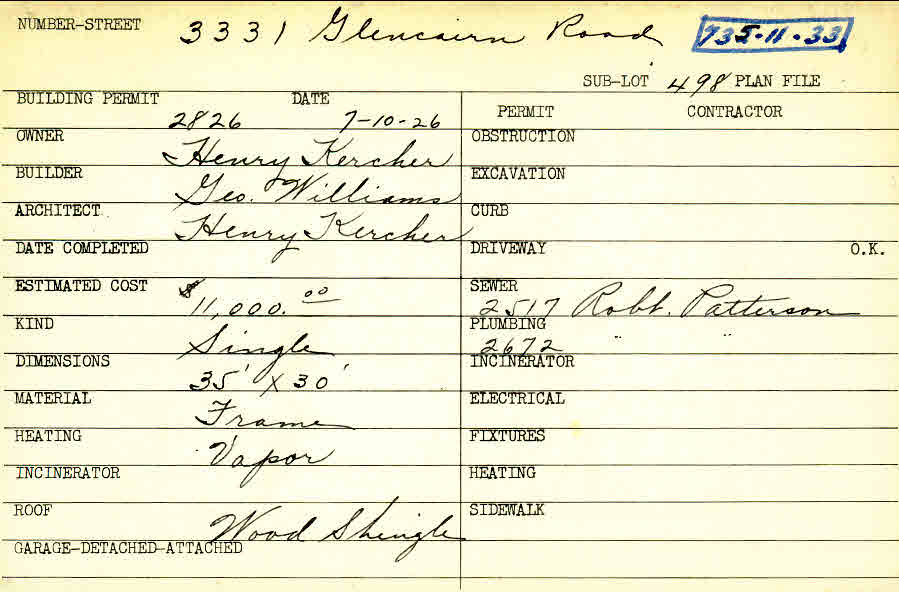 NUMBER-STREET 3331 Glencairn Road 735-11-33
SUB-LOT 498 PLAN FILE
BUILDING PERMIT DATE PERMIT CONTRACTOR
2826 7-10-26
OWNER Henry Kercher OBSTRUCTION
BUILDER Geo. Williams EXCAVATION
ARCHITECT Henry Kercher CURB
DATE COMPLETED DRIVEWAY O.K.
ESTIMATED COST $11,000.00 SEWER 2517 Robt. Patterson
KIND Single PLUMBING 2672 " "
DIMENSIONS 35' X 30' INCINERATOR
MATERIAL Frame ELECTRICAL
HEATING Vapor FIXTURES
INCINERATOR HEATING
ROOF Wood Shingle SIDEWALK
GARAGE-DETACHED-ATTACHED